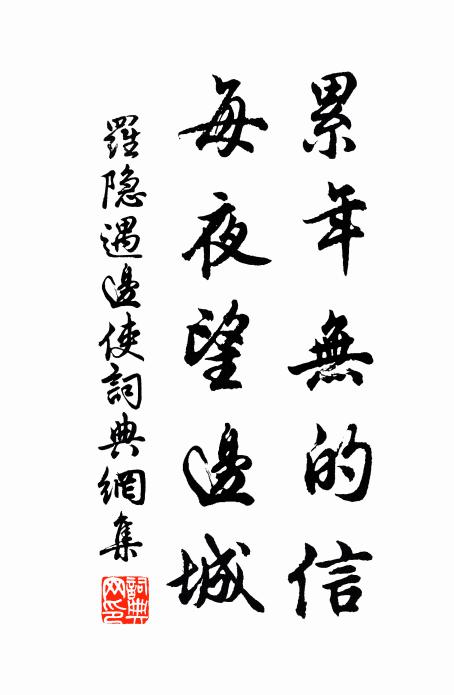 累年無的信
每夜望邊城
羅隐遇邊使詞典網集
詞典网印